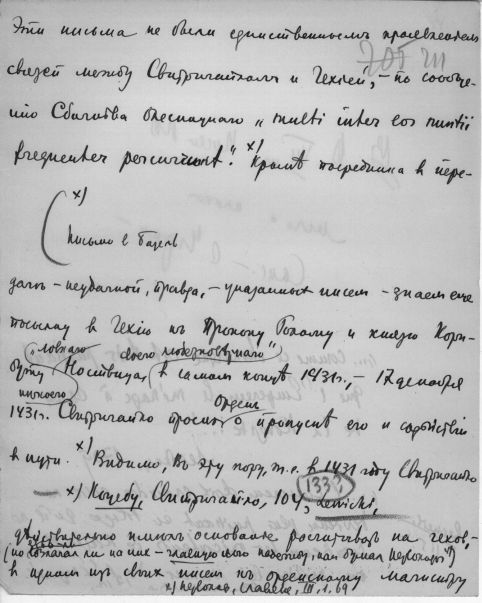 Эти письма не были единственным проявлением
связей между Свитригайлом и Чехией, – по сообще-
нию Сбигнева Олесницкого „multi inter eos nuntii
frequenter percurrunt." х) Кроме посредника в пере-
х)
письмо в Базель
даче – неудачной, правда, – указанных писем – знаем еще
посылку в Чехию к Прокопу Голому и князю Кори-
„ловкаго своего
буту Носивида, в самом конце 1431 г., – 17 декабря
1431 г. Свитригайло просил Орден о пропуске его и содействии
в пути. х) Видимо, в эту пору, т.е. в 1431 году Свитригайло
х) Коцебу, Свитригайло, 104, 133
действительно имел основание рассчитывать на чехов,–
(но возлагал ли на них – главную свою надежду, как думал Первольф х)
в одном из своих писем к орденскому магистру
х) Первольф, Славяне, III, 1. 69